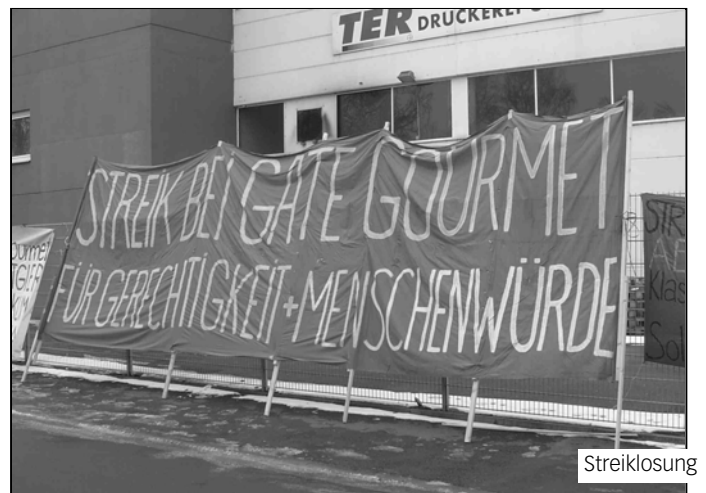 TER DRUCKEREI
STREIK BEI GATE GOURMET
FÜR GERECHTIGKEIT + MENSCHENWÜRDE
STR
Klas
Sol
Streiklosung